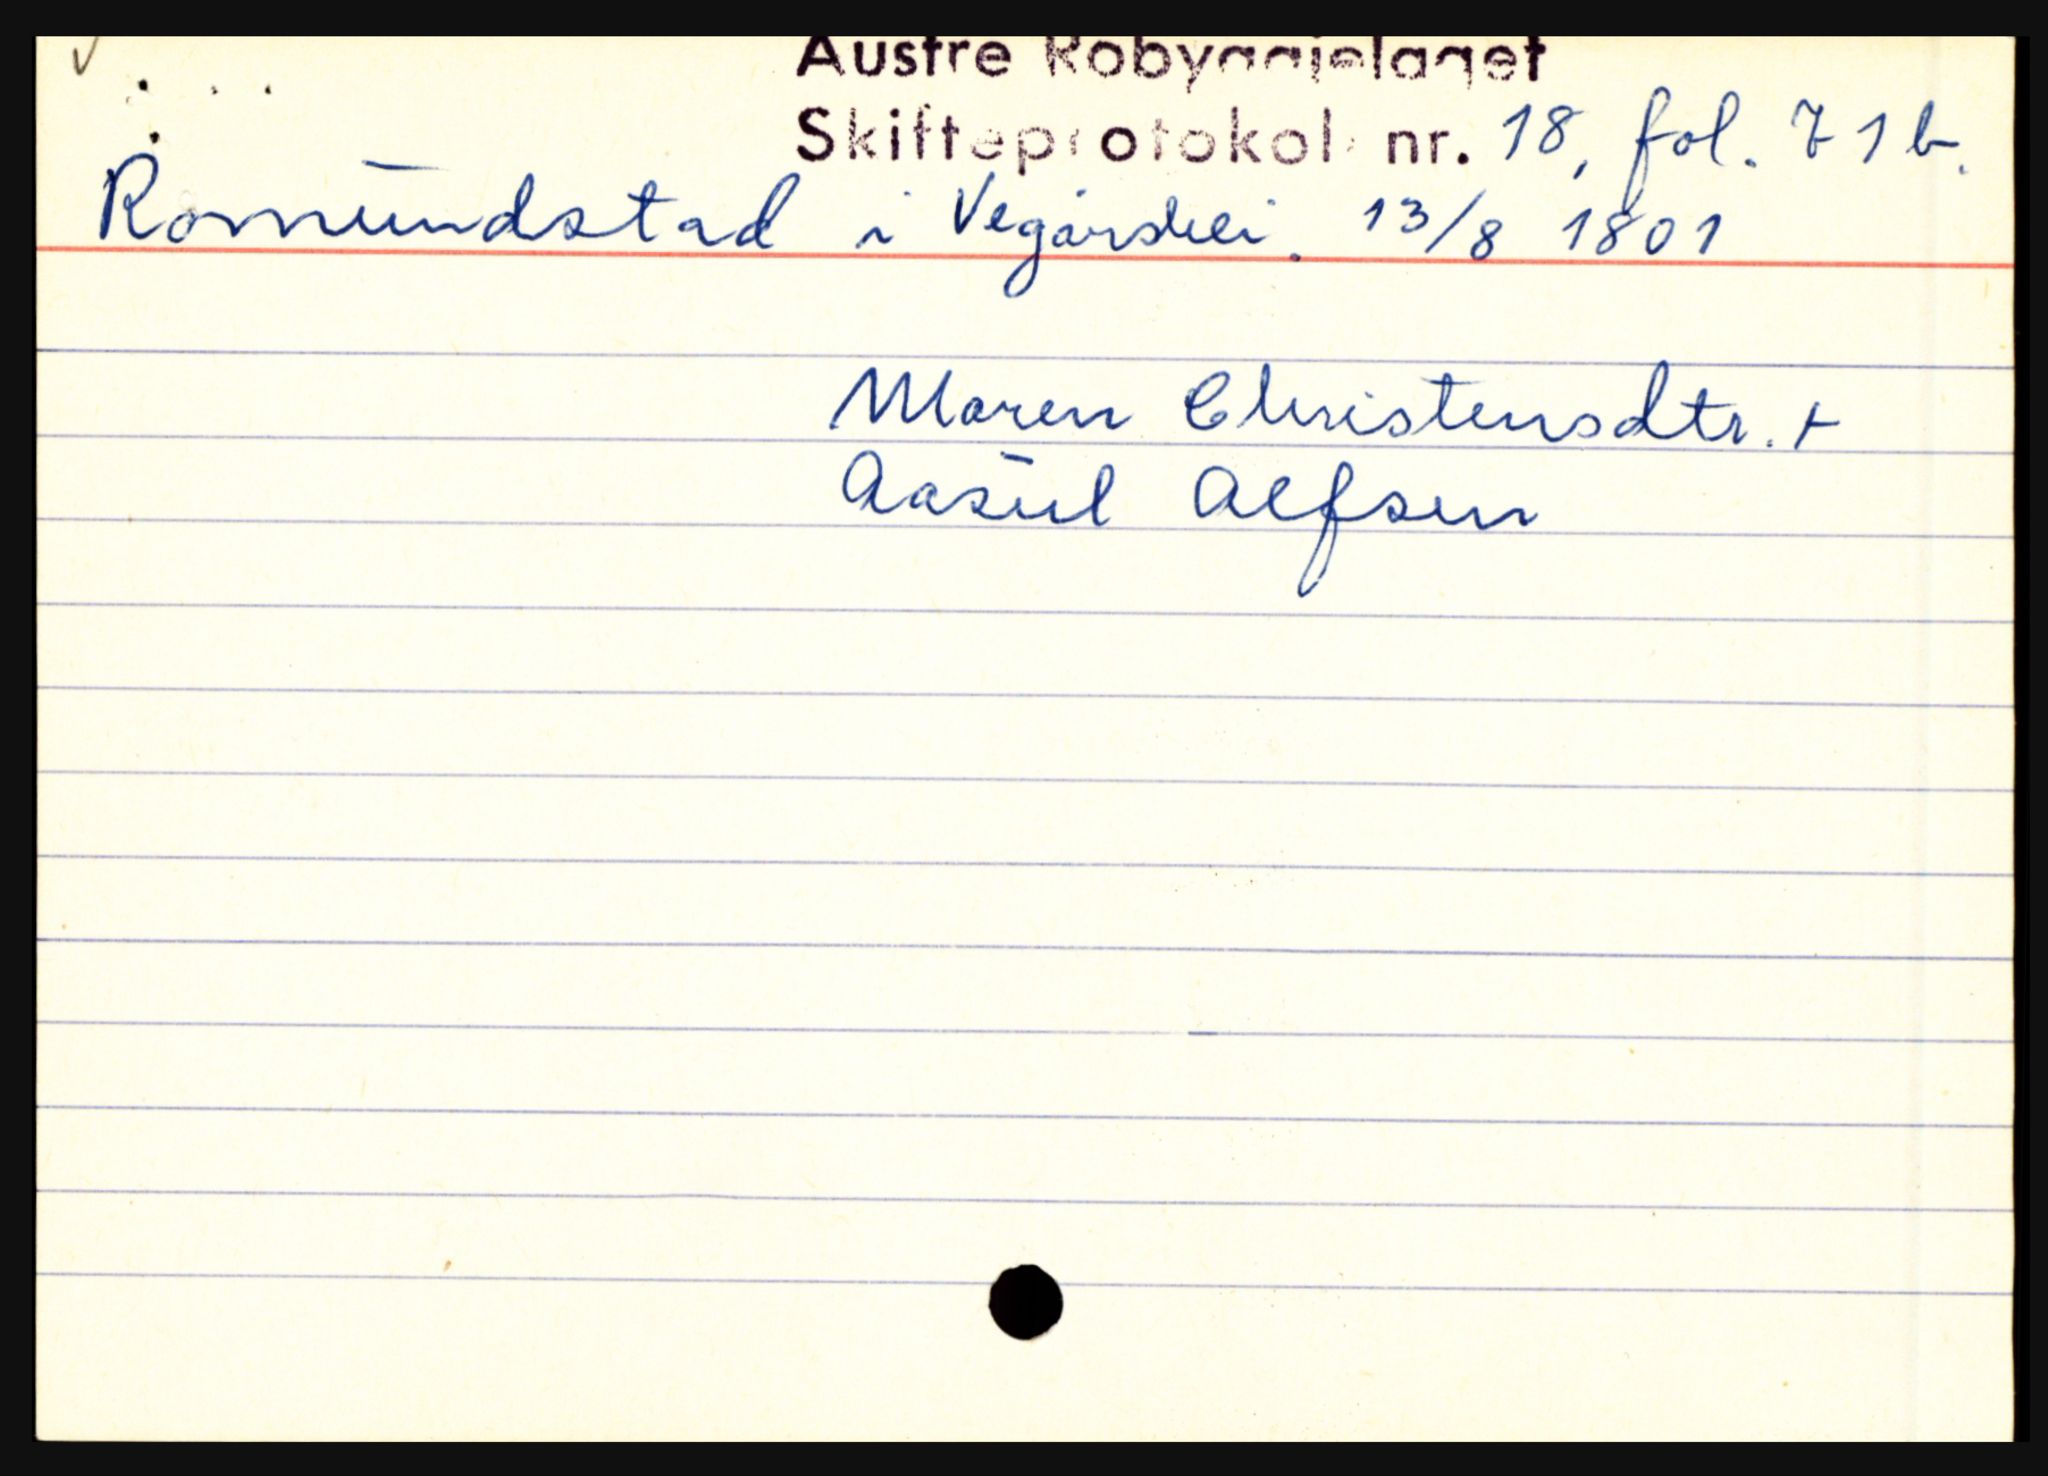 Austre Robyggjelaget
Skifteprotokoll nr. 18, fol. 71b.
Romundstad i Vegårshei. 13/8 1801
Maren Christensdtr. +
Aasul Alfsen